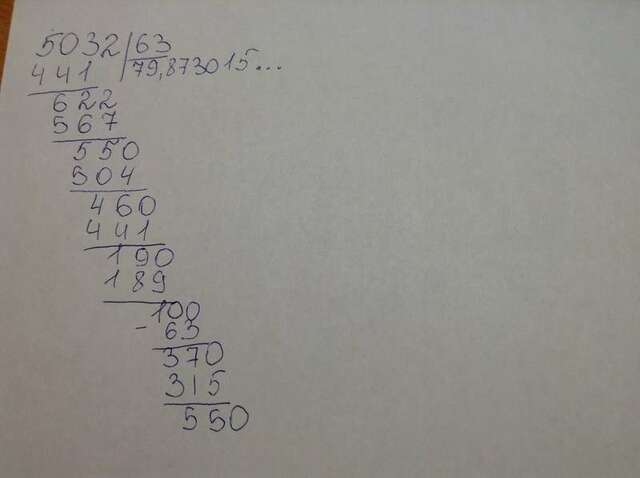 5032 63
441 79,873015...
622
567
550
504
460
441
190
189
100
- 63
370
315
550